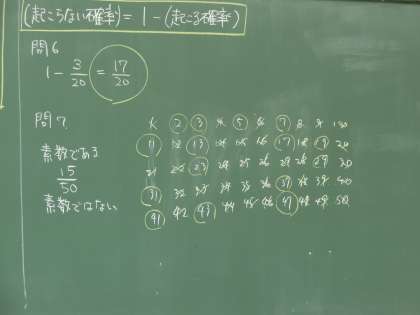 (起こらない確率) = 1 - (起こる確率)
問6
1 - 3/20 = 17/20
問7
素数である
15/50
素数ではない
1 2 3 4 5 6 7 8 9 10
11 12 13 14 15 16 17 18 19 20
21 22 23 24 25 26 27 28 29 30
31 32 33 34 35 36 37 38 39 40
41 42 43 44 45 46 47 48 49 50